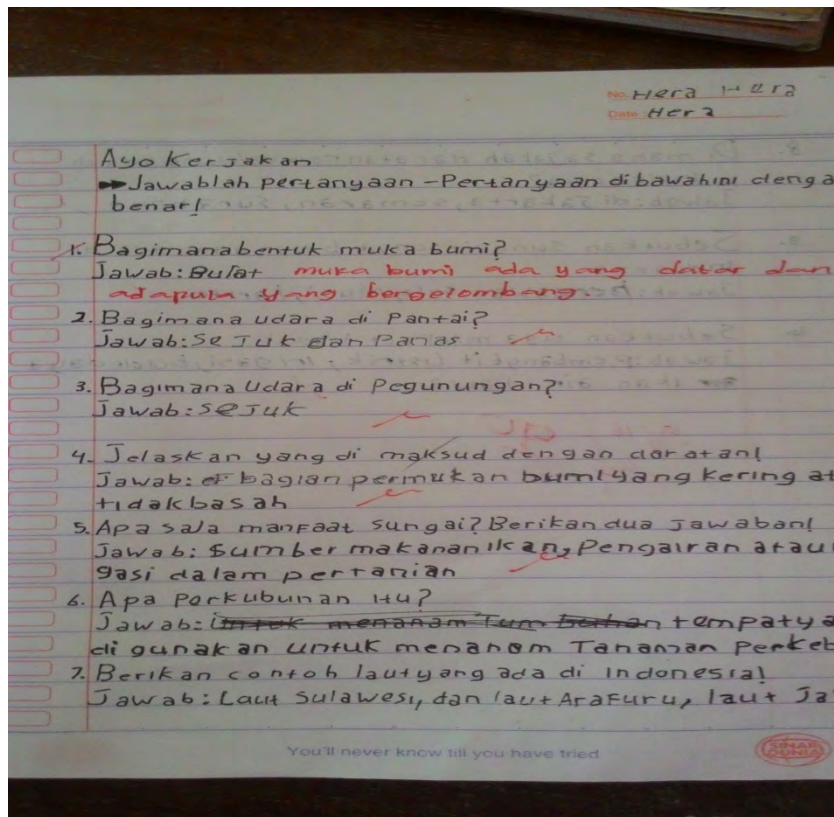 No. Hera Hera
Date Hera
Ayo Kerjakan
Jawablah pertanyaan-Pertanyaan dibawahini denga
benar!
1. Bagimanabentuk muka bumi?
Jawab: Bulat muka bumi ada yang datar dan
adapula yang bergelombang.
2. Bagimana udara di Pantai?
Jawab: SeJuk dan Panas
3. Bagimana Udara di Pegunungan?
Jawab: SeJuk
4. Jelaskan yang di maksud dengan daratan!
Jawab: bagian permukan bumi yang Kering at
tidakbasah
5. Apa saJa manFaat sungai? Berikan dua Jawaban!
Jawab: Sumber makananikan, Pengairan atau
gasi dalam pertanian
6. Apa Porkubunan itu?
Jawab: Untuk menanam Tum tempatya
di gunakan untuk menanam Tanaman Perkeb
7. Berikan contoh lautyang ada di Indonesia!
Jawab: Laut Sulawesi, dan laut AraFuru, laut Ja
You'll never know till you have tried
SINAR DUNIA